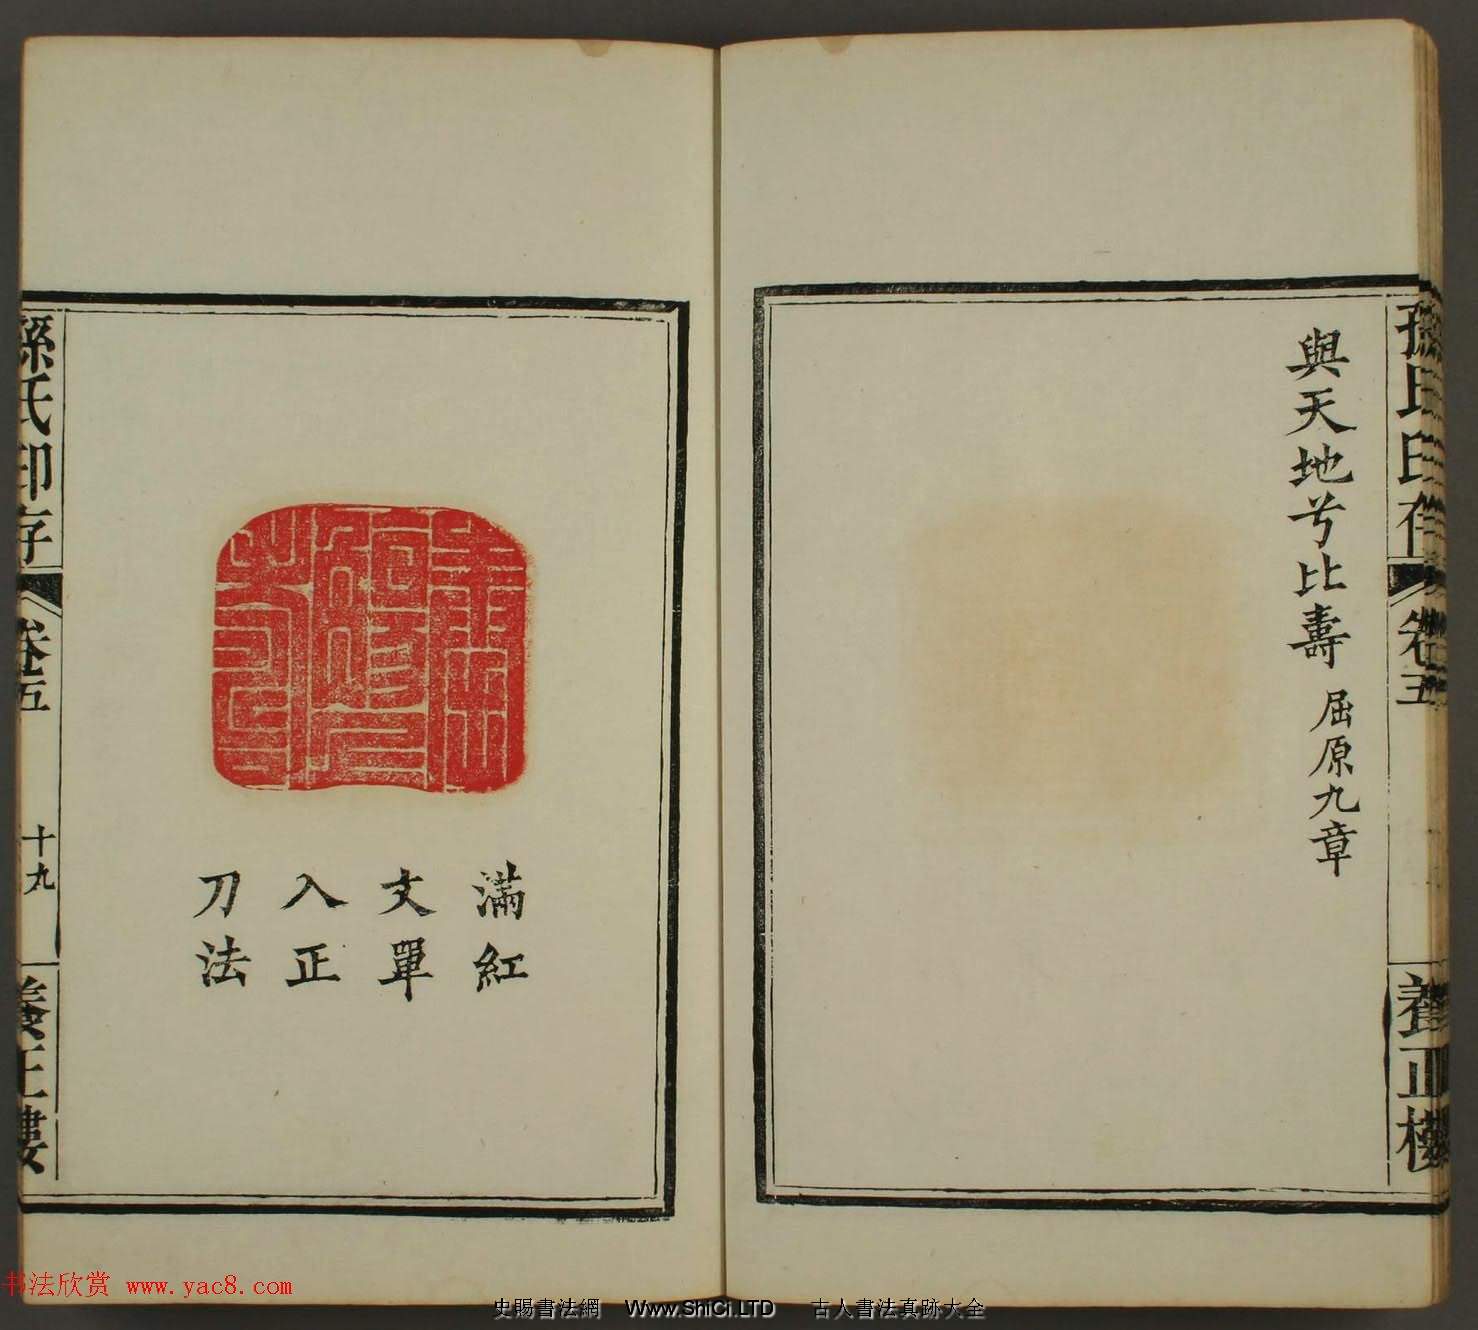 與天地兮比壽 屈原九章
孫氏印存
卷五
養正樓
滿紅
文單
入正
刀法
孫氏印存
卷五
十九
養正樓
书法欣赏 www.yac8.com
史賜書法網 Www.ShiCi.LTD 古人書法真跡大全